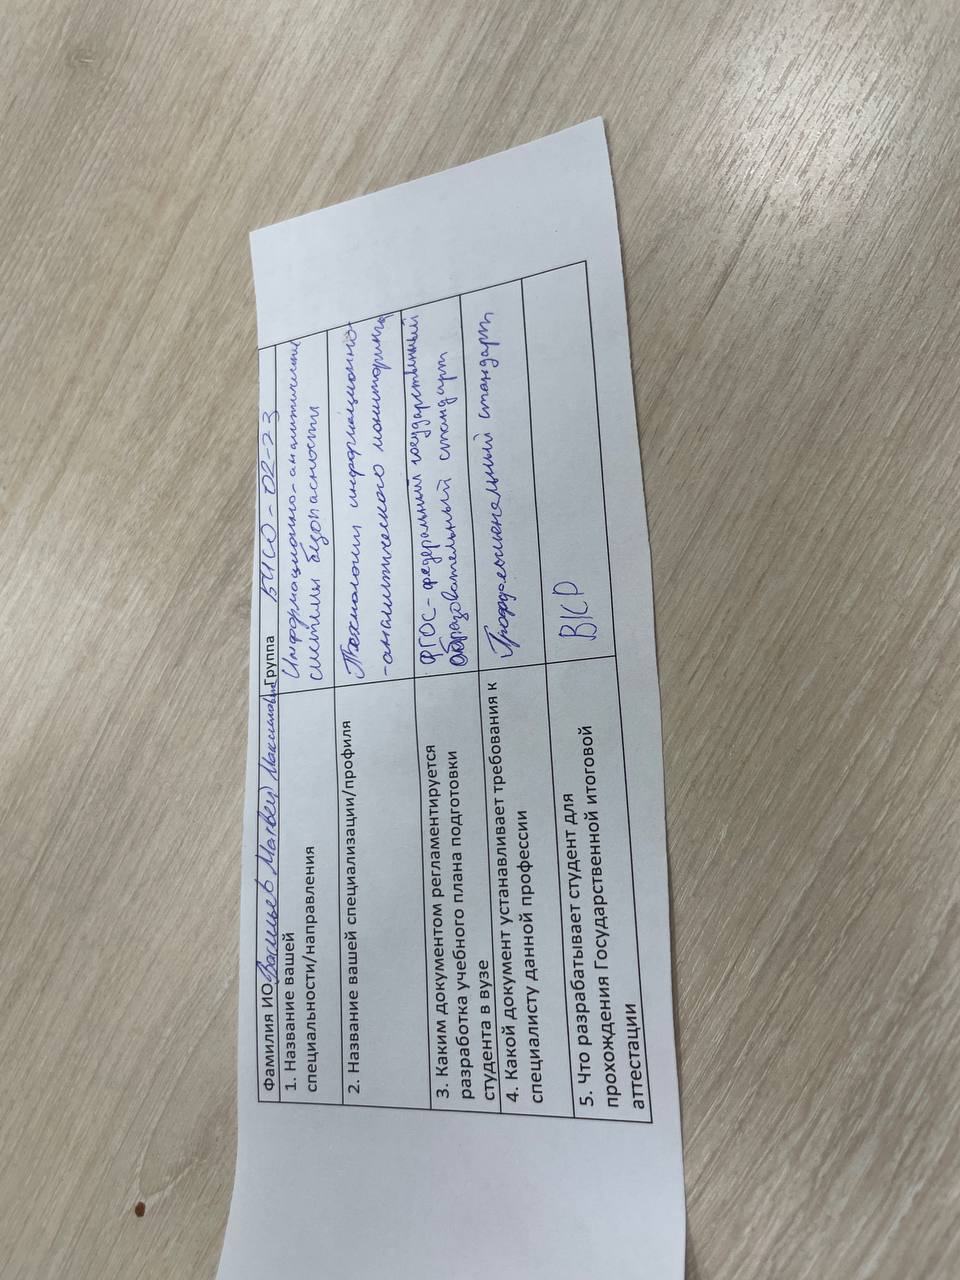 Фамилия ИО Васильев Матвей Максимович Группа БИСО-02-23
1. Название вашей
специальности/направления
Информационно-аналитические
системы безопасности
2. Название вашей специализации/профиля
Технологии информационно-
-аналитического мониторинга
3. Каким документом регламентируется
разработка учебного плана подготовки
студента в вузе
ФГОС-федеральный государственный
образовательный стандарт
4. Какой документ устанавливает требования к
специалисту данной профессии
Профессиональный стандарт
5. Что разрабатывает студент для
прохождения Государственной итоговой
аттестации
ВКР